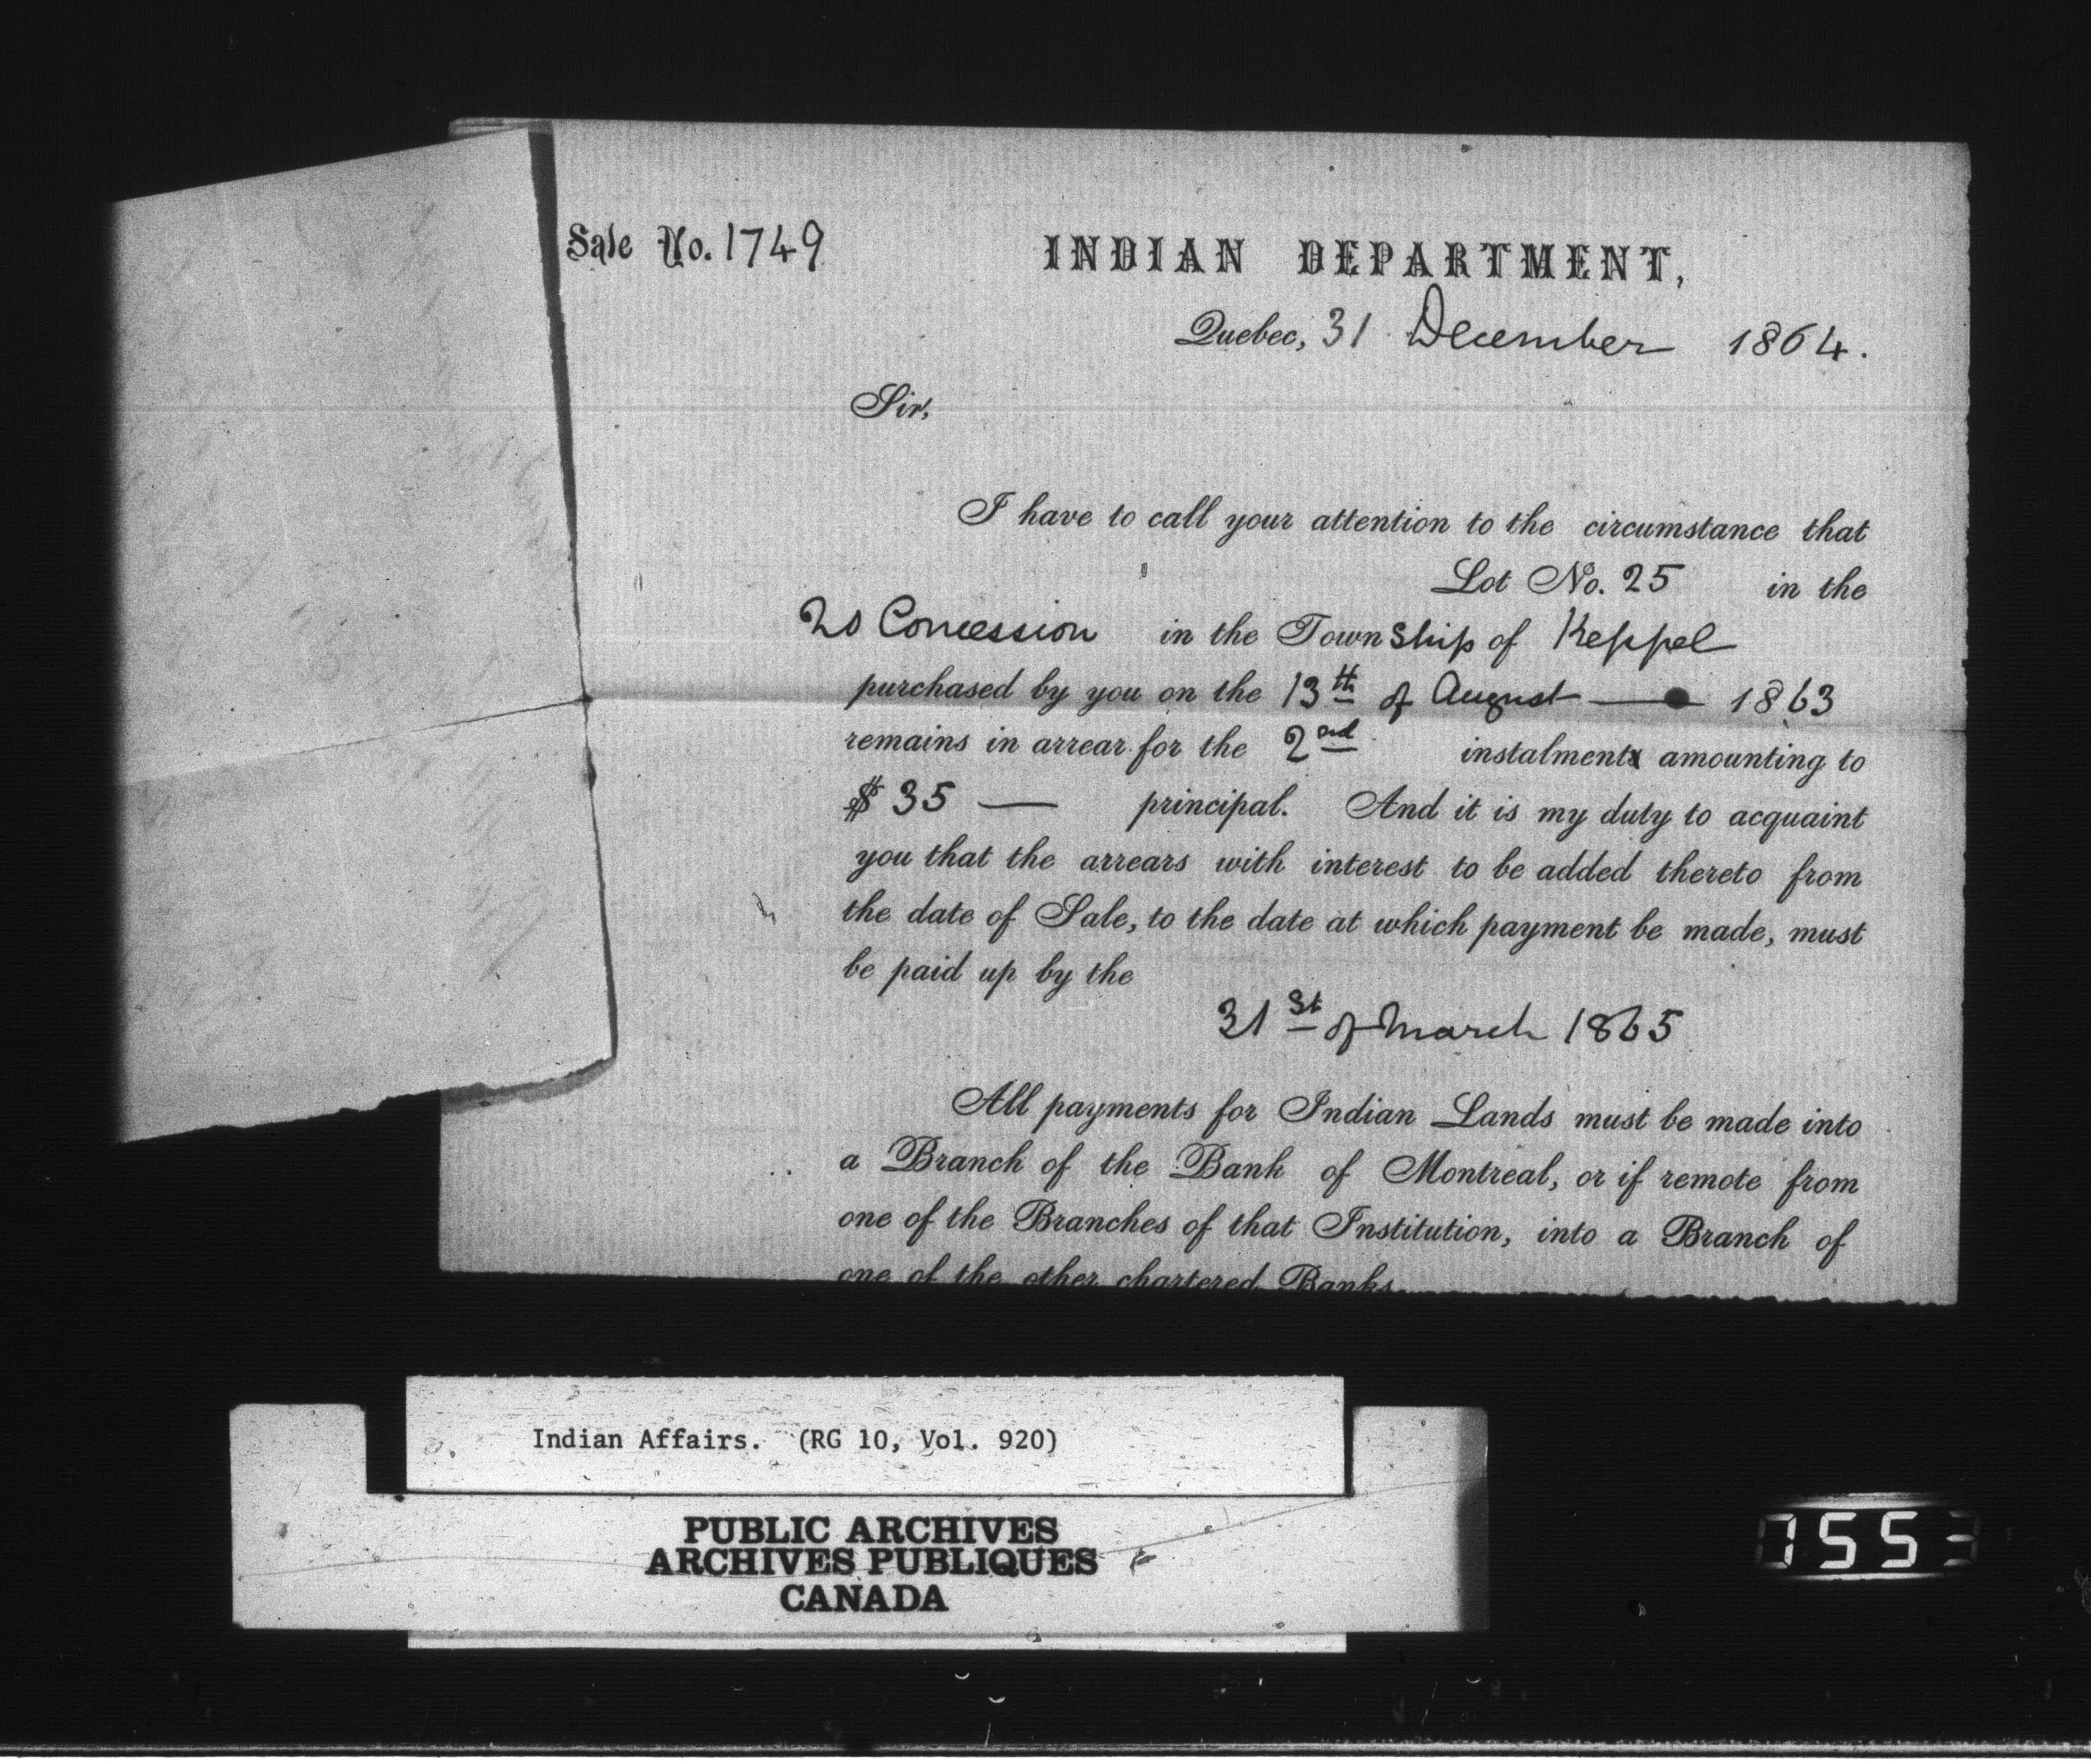 Sale No. 1749
INDIAN DEPARTMENT,
Quebec, 31 December 1864.
Sir,
I have to call your attention to the circumstance that
Lot No. 25 in the
20 Concession in the Township of Keppel
purchased by you on the 13th of August — 1863
remains in arrear for the 2nd instalment amounting to
$ 35 — principal. And it is my duty to acquaint
you that the arrears with interest to be added thereto from
the date of Sale, to the date at which payment be made, must
be paid up by the
31st of March 1865
All payments for Indian Lands must be made into
a Branch of the Bank of Montreal, or if remote from
one of the Branches of that Institution, into a Branch of
one of the other chartered Banks
Indian Affairs. (RG 10, Vol. 920)
PUBLIC ARCHIVES
ARCHIVES PUBLIQUES
CANADA
7553